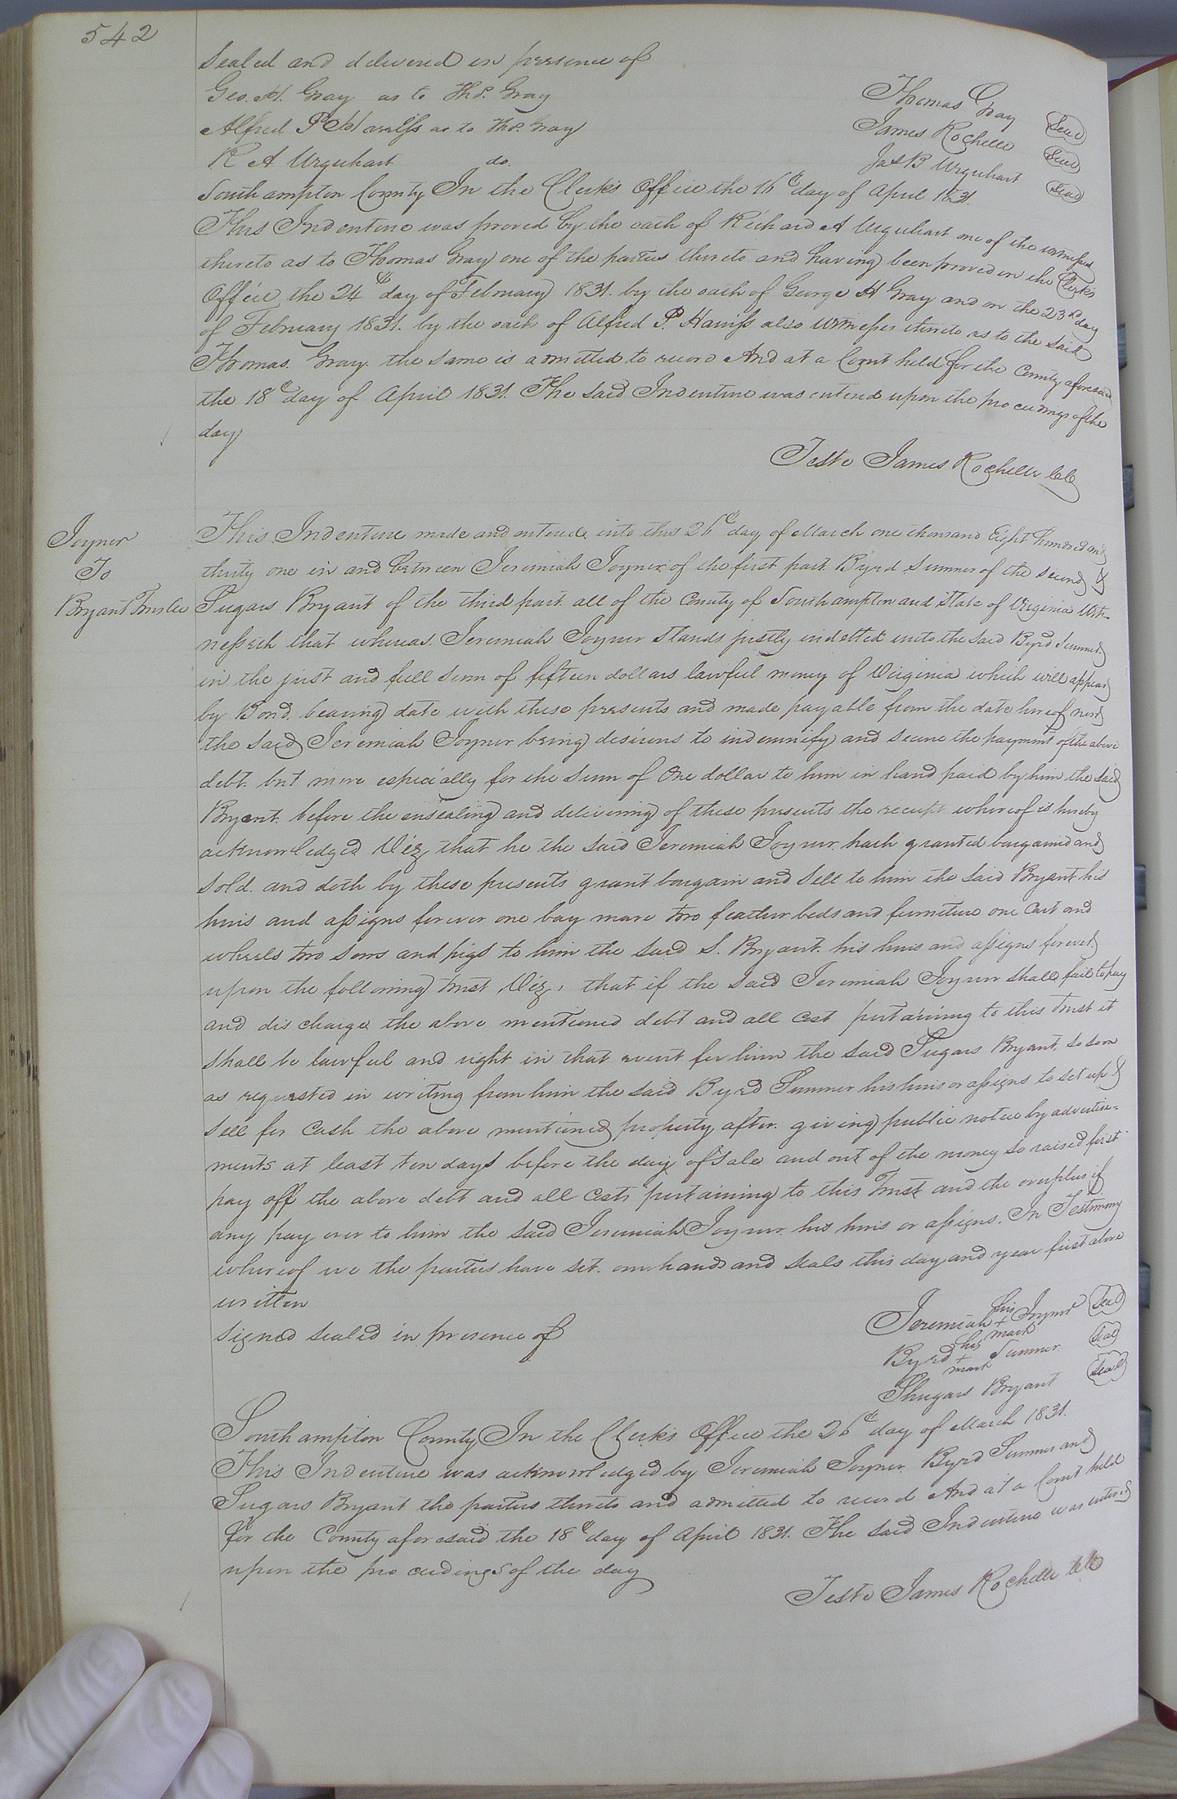 542
Sealed and delivered in presence of
Geo. H. Gray as to Thos. Gray
Thomas Gray Seal
Alfred P. as to Thos. Gray
James Rochelle Seal
R A Urquhart do.
Jas B Urquhart Seal
Southampton County In the Clerk's Office the 16th day of April 1831.
This Indenture was proved by the oath of Richard A Urquhart one of the witnesses
thereto as to Thomas Gray one of the parties thereto and having been proved in the Clerks
Office the 24th day of February 1831. by the oath of George H Gray and on the 23rd day
of February 1831. by the oath of Alfred P. also witnesses thereto as to the said
Thomas Gray the same is admitted to record And at a Court held for the County aforesaid
the 18th day of April 1831. The said Indenture was entered upon the proceedings of the
day
Teste James Rochelle CC
Joyner
To
Bryant Trustee
This Indenture made and entered into this 26th day of March one thousand Eight hundred and
thirty one in and between Jeremiah Joyner of the first part Byrd Sumner of the second &
Sugars Bryant of the third part all of the County of Southampton and State of Virginia Wit-
nesseth that whereas Jeremiah Joyner Stands justly indetted unto the said Byrd Sumner
in the just and full Sum of fifteen dollars lawful money of Virginia which will appear
by Bond. bearing date with these presents and made payable from the date hereof next
the said Jeremiah Joyner being desirous to indemnify and secure the payment of the above
debt. but more especially for the Sum of One dollar to him in hand paid by him the said
Bryant. before the ensealing and delivering of these presents the receipt whereof is hereby
acknowledged Viz, that he the said Jeremiah Joyner. hath granted bargained and
Sold. and doth by these presents grant bargain and Sell to him the said Bryant his
heirs and assigns forever one bay mare two feather beds and furniture one Cart and
wheels two Sows and pigs to him the said S. Bryant. his heirs and assigns forever
upon the following trust Viz, that if the said Jeremiah Joyner shall fail to pay
and discharge the above mentioned debt and all cost pertaining to this trust it
shall be lawful and right in that event for him the said Sugars Bryant, so soon
as requested in writing from him the said Byrd Sumner his heirs or assigns to set up &
Sell for Cash the above mentioned property after. giving public notice by advertise-
ments at least ten days before the day of Sale and out of the money so raised first
pay off the above debt and all Costs pertaining to this Trust and the overplus if
any pay over to him the said Jeremiah Joyner. his heirs or assigns. In Testimony
whereof we the parties have set. our hands and seals this day and year first above
written
Signed sealed in presence of
Jeremiah his + mark Joyner Seal
Byrd his + mark Sumner Seal
Shugars Bryant Seal
Southampton County In the Clerk's Office the 26th day of March 1831.
This Indenture was acknowledged by Jeremiah Joyner Byrd Sumner and
Sugars Bryant the parties thereto and admitted to record And at a Court held
for the County aforesaid the 18th day of April 1831. The said Indenture was entered
upon the proceedings of the day
Teste James Rochelle CC